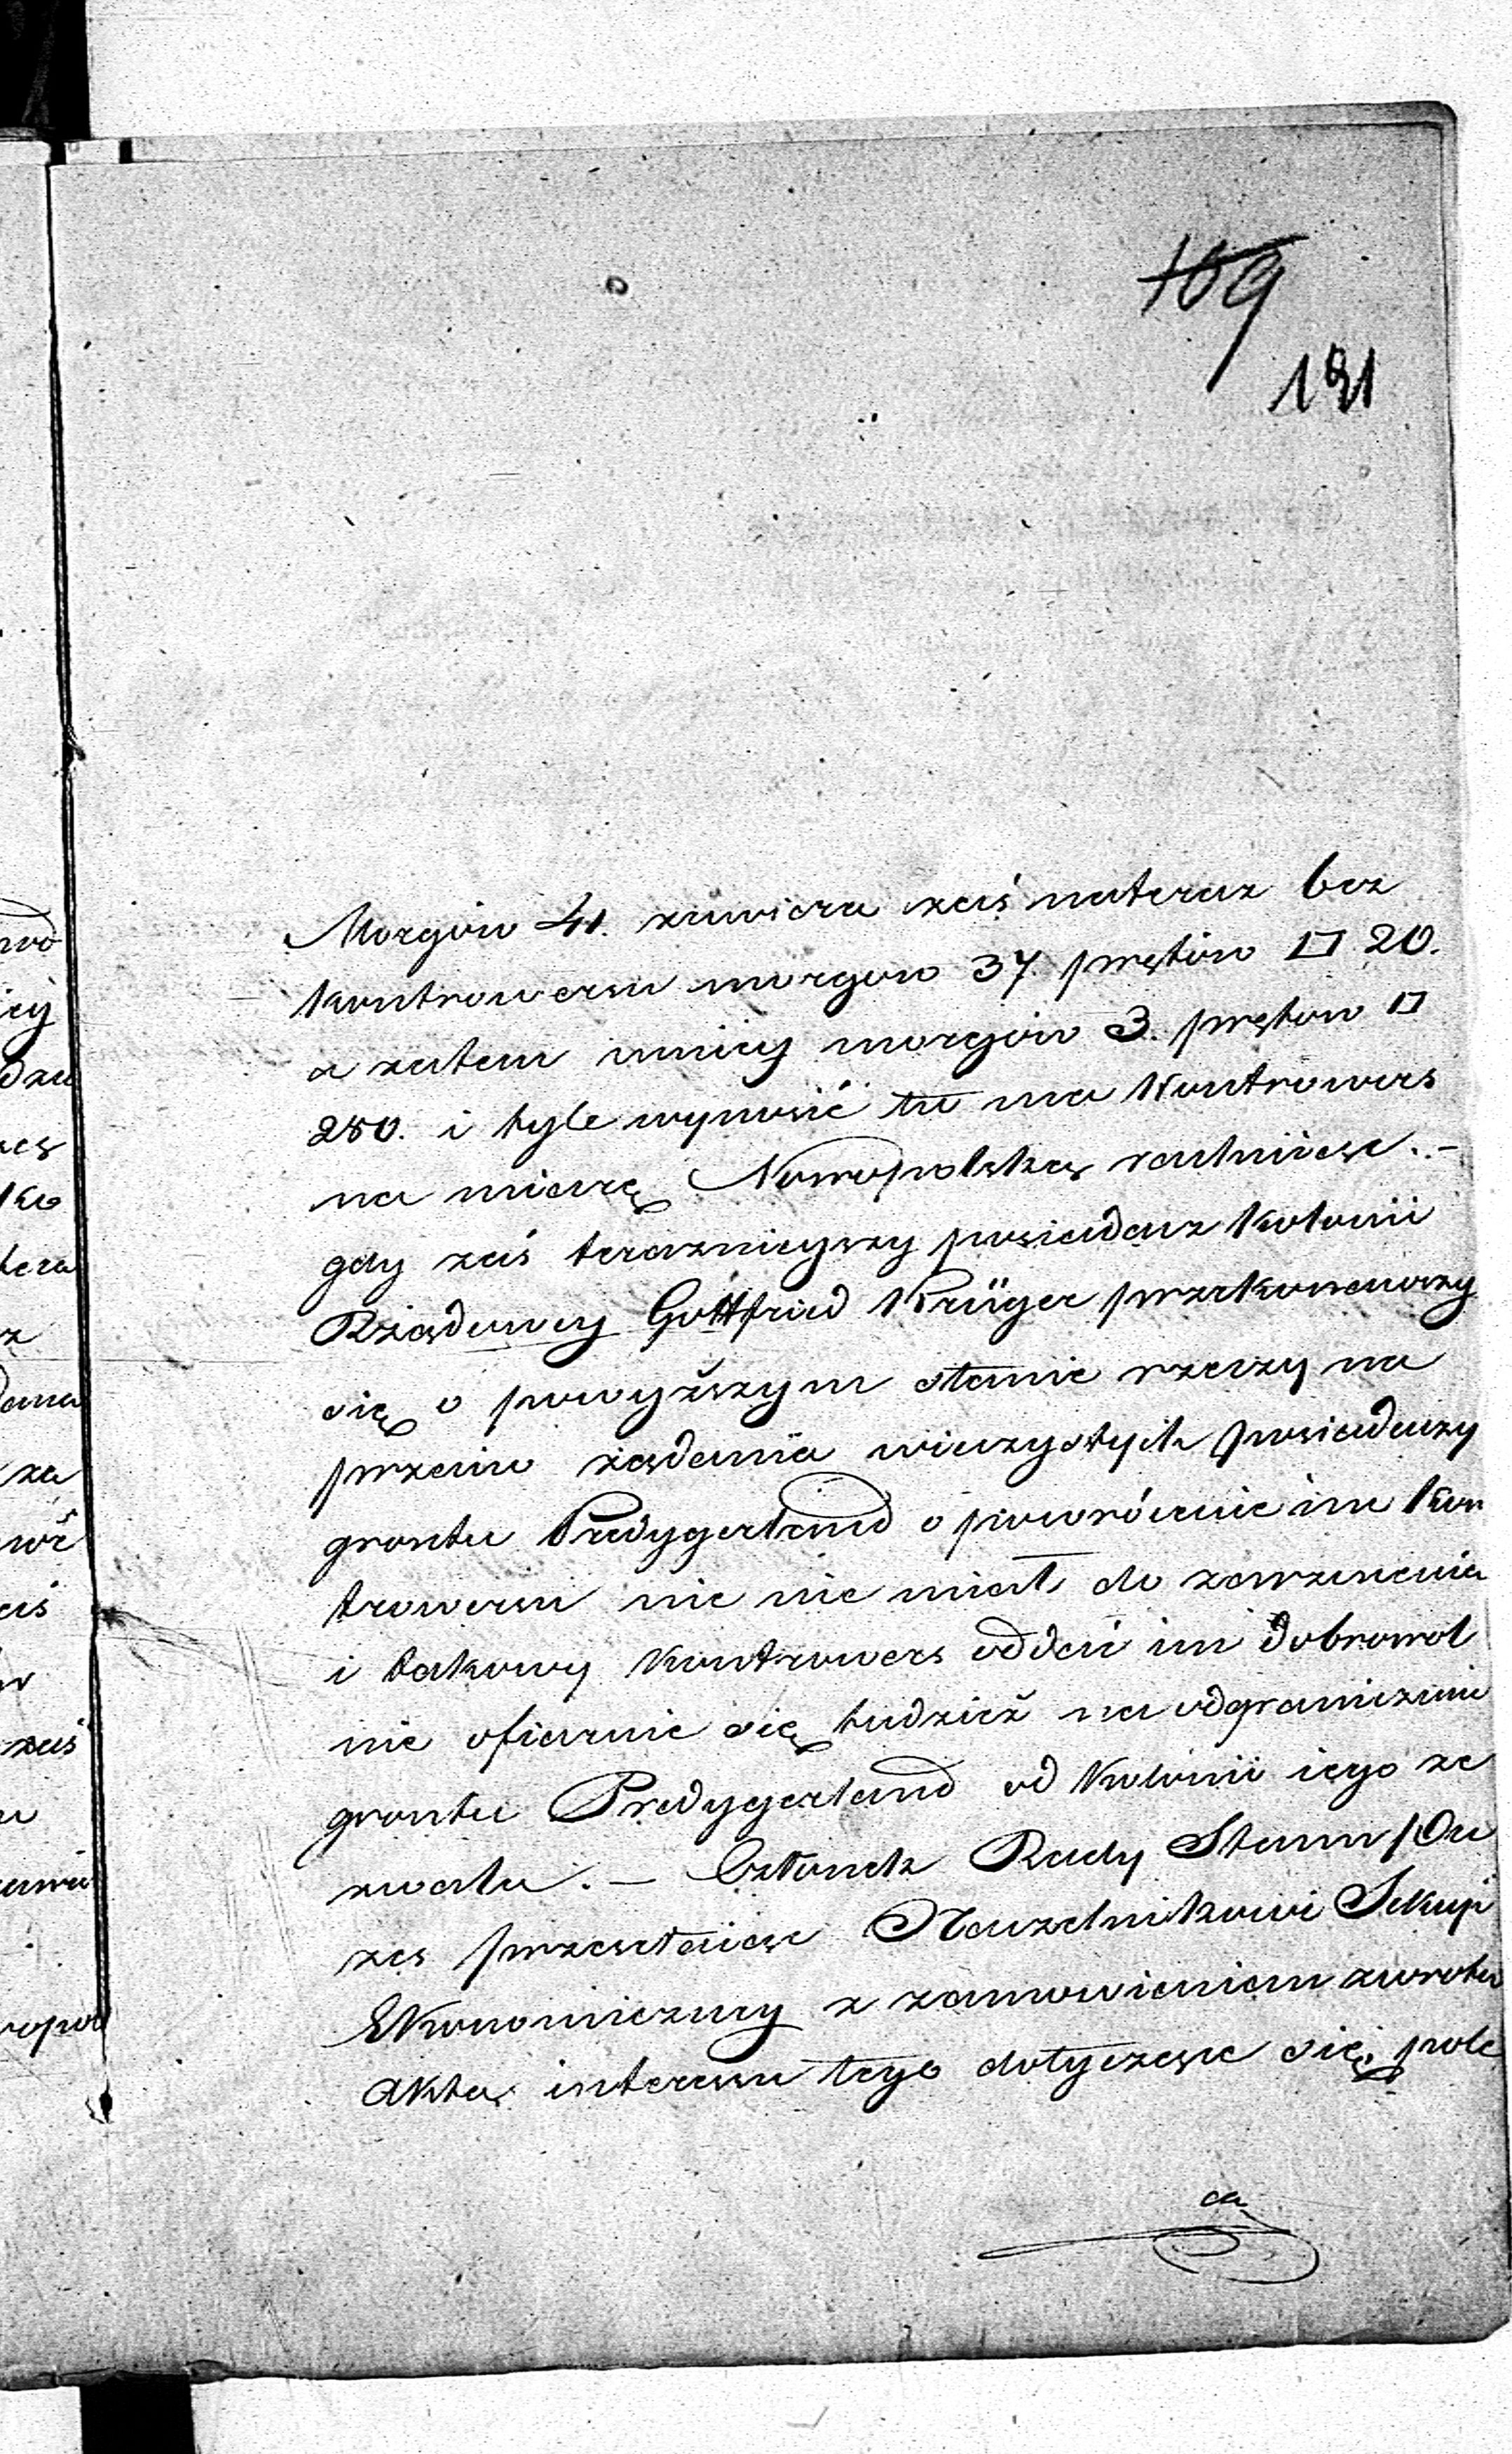 109
191
Morgów 41. zawiera zaś nateraz bez
kontrowersu morgow 37. prętów □ 20.
a zatem mniéy morgów 3. prętow □
280. i tyle wynosić tu ma Kontrowers
na miarę Nowopolską rachuiąc. –
gdy zaś teraznieyszy posiadacz Kolonii
Rządowey Gottfried Krüger przekonawszy
się o powyższym stanie rzeczy na
przeciw żądania wieczystych posiadaczy
gruntu Predygerland o powrócenie im kon
trowersu nic nie miał do zarzucenia
i takowy Kontrowers oddać im dobrowol
nie ofiaruie się tudzież na odgraniczenie
gruntu Predygerland od Kolonii iego ze
zwala. – Członek Rady Stanu /:Du
ząc przesełaiąc Naczelnikowi Sekcyi
Ekonomiczney z zamowieniem zwrotu
Akta, interessu tego dotyczące się, pole
ca
wo
iey
dza
Ko
tera
z
dana
za
aś
zaś